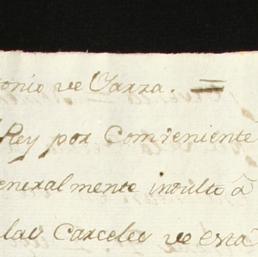 onio de Yarza. =
Rey por Comveniente
eneralmente indulto â
las Carceles de esta